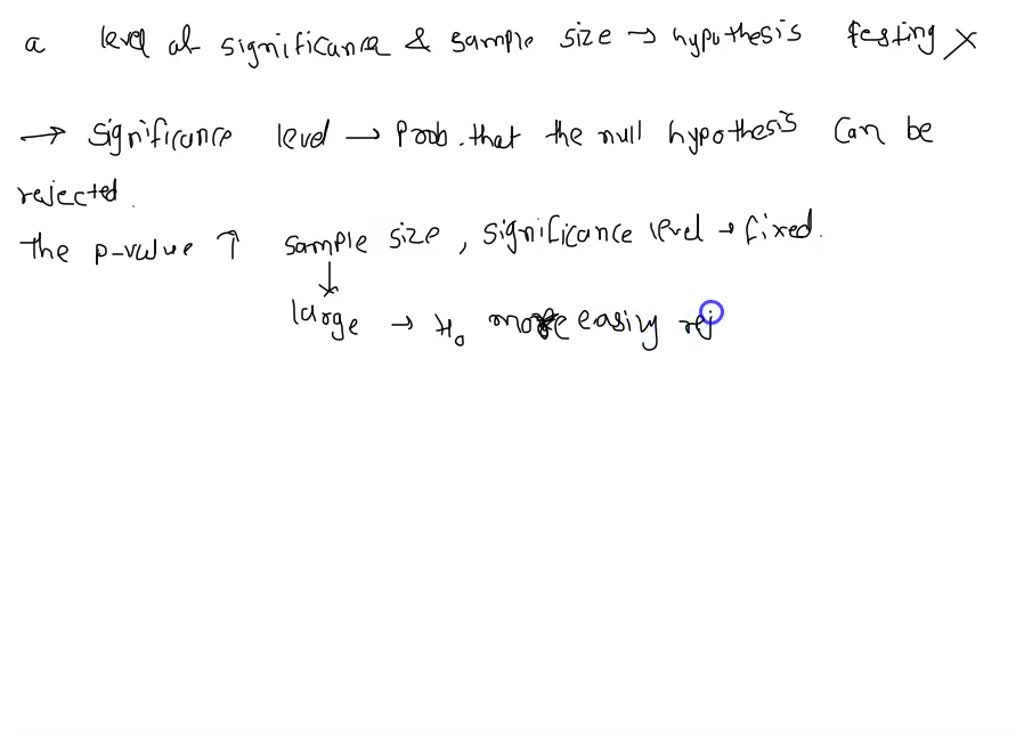 a level of significance & sample size → hypothesis testing x
→ Significance level → Prob. that the null hypothesis can be
rejected.
The p-value ↑ sample size, significance level → fixed.
↓
large → H₀ more easily rej